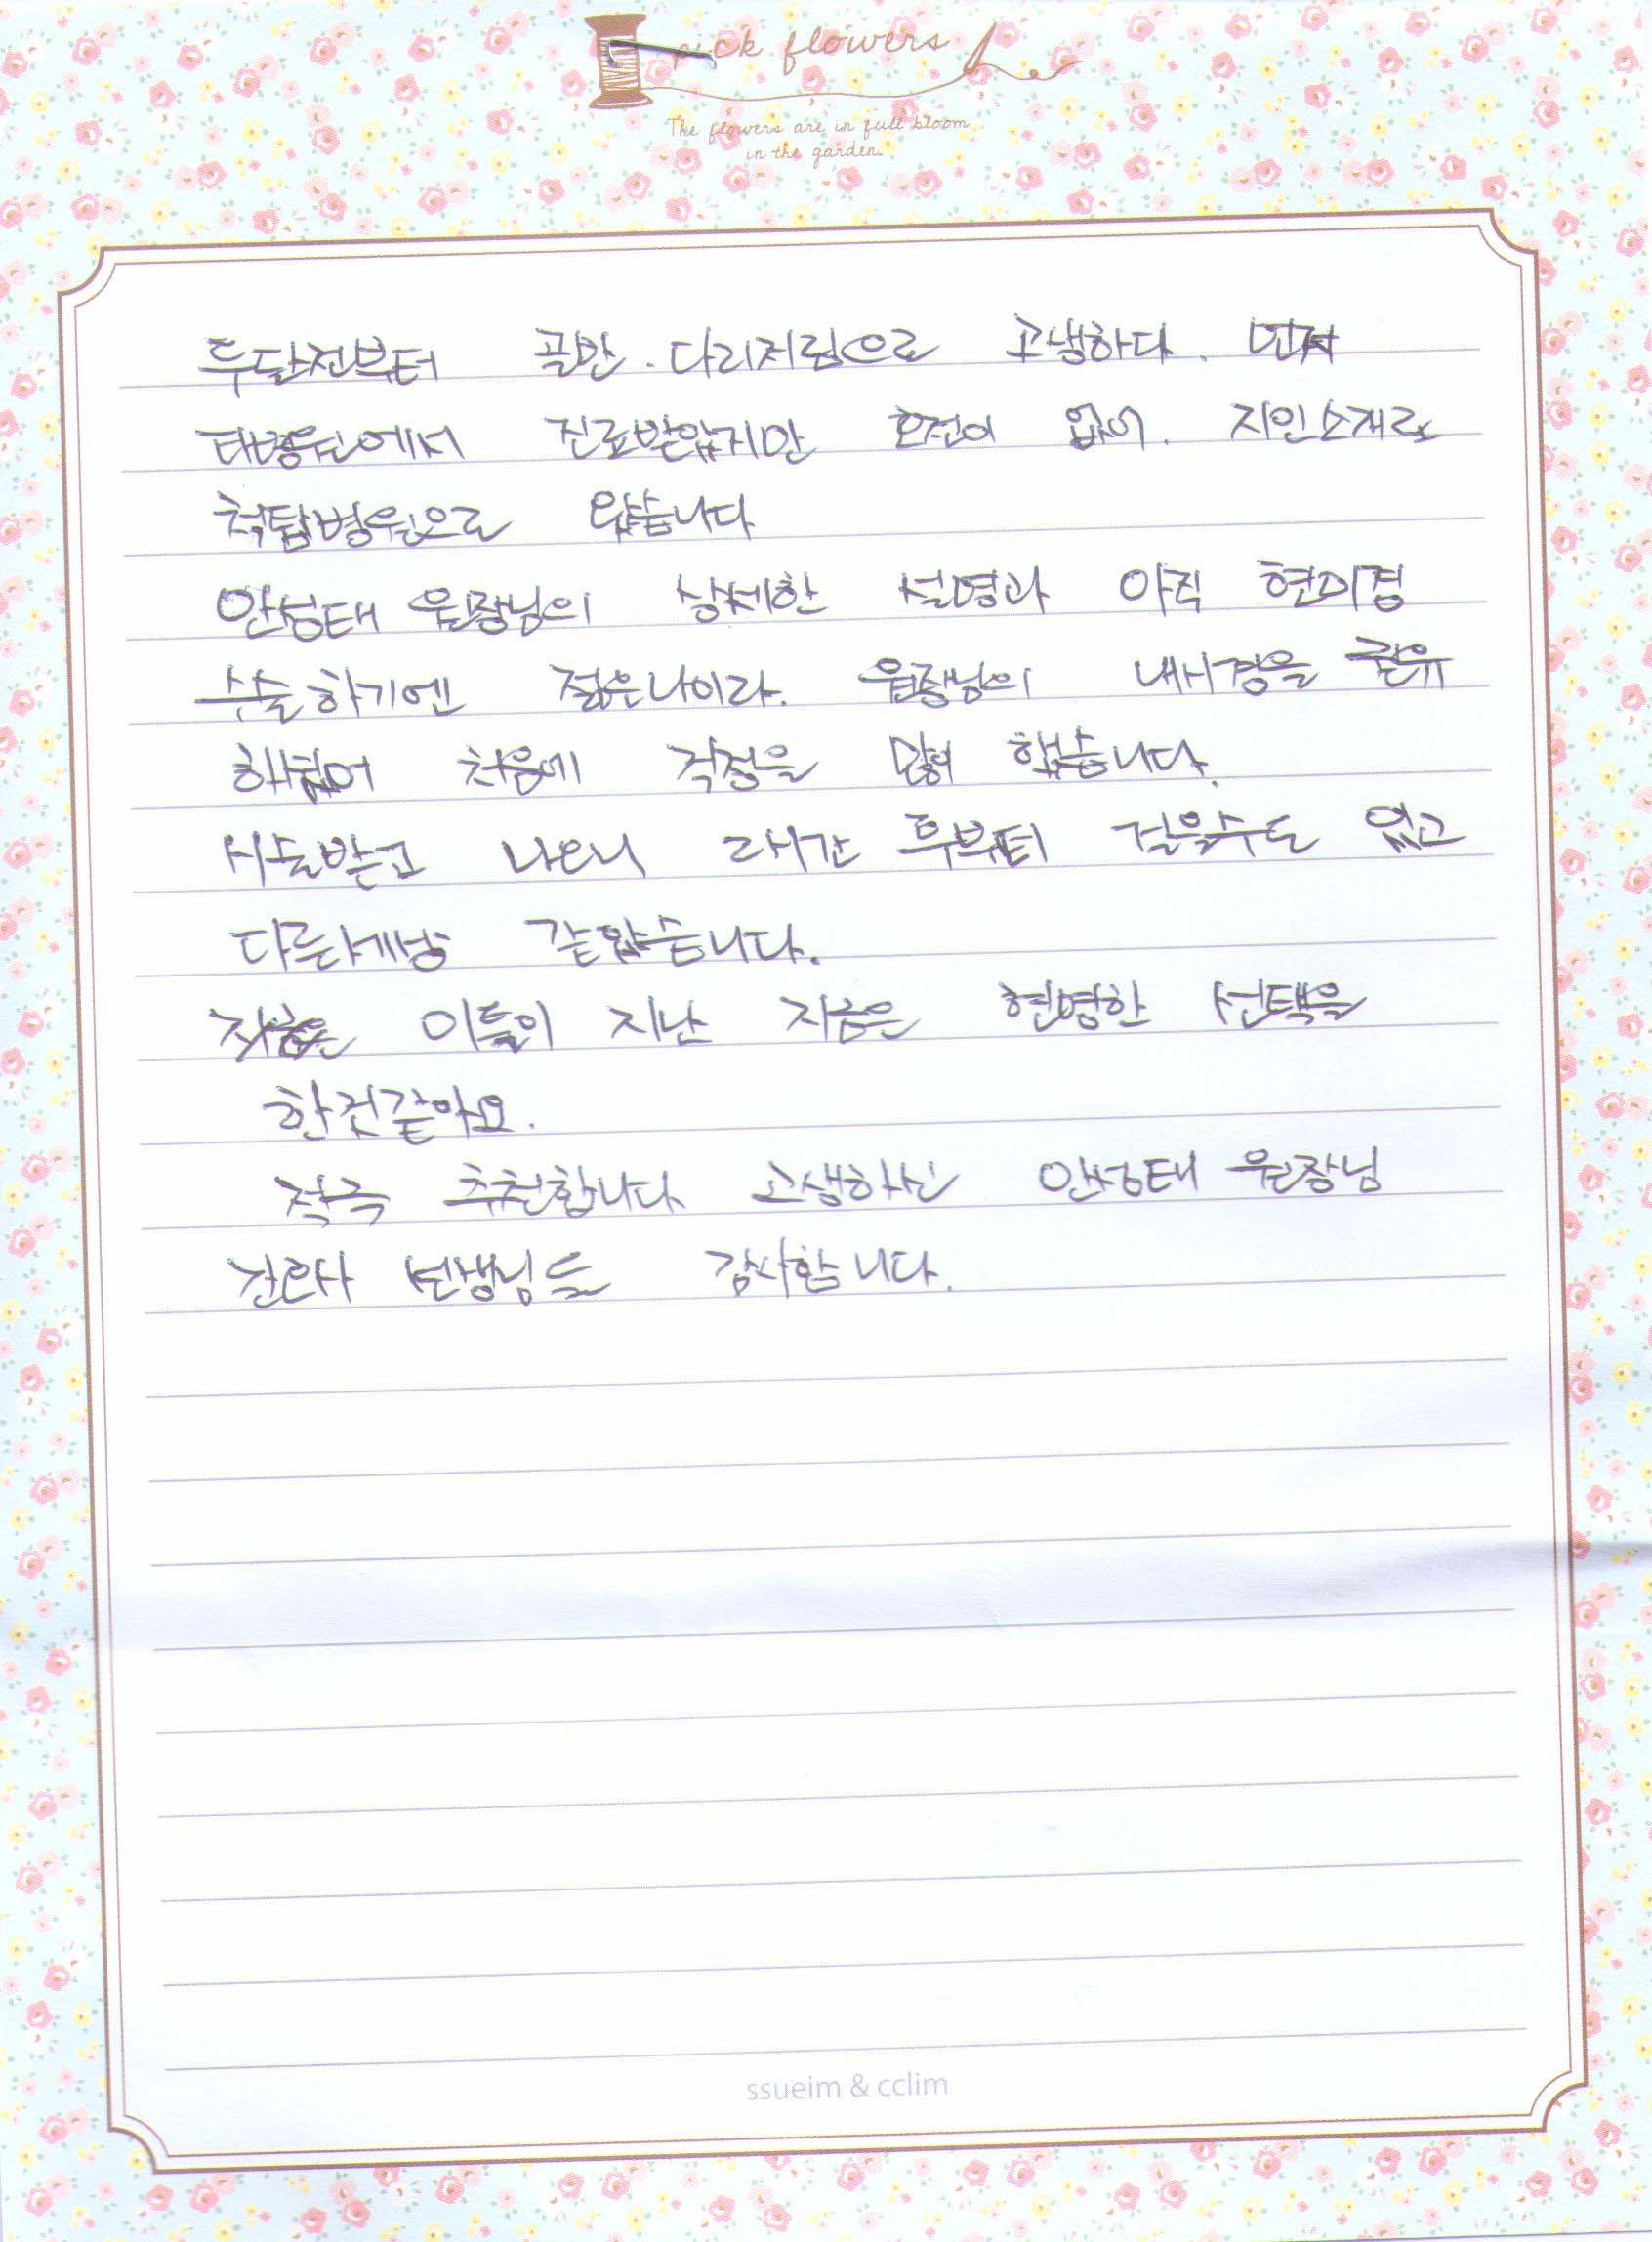 pick flowers
The flowers are in full bloom
in the garden.
두달전부터 골반. 다리저림으로 고생하다. 먼저
타병원에서 진료받았지만 호전이 없어. 지인소개로
척탑병원으로 왔습니다
안성태 원장님의 상세한 설명과 아직 현미경
수술하기엔 젊은나이라. 원장님의 내시경을 권유
하셨어 처음에 걱정을 많이 했습니다.
시술받고 나오니 2시간 후부터 걸을수도 있고
다른세상 같았습니다.
이틀이 지난 지금은 현명한 선택을
한것같아요.
적극 추천합니다 고생하신 안성태 원장님
간호사 선생님들 감사합니다.
ssueim & cclim